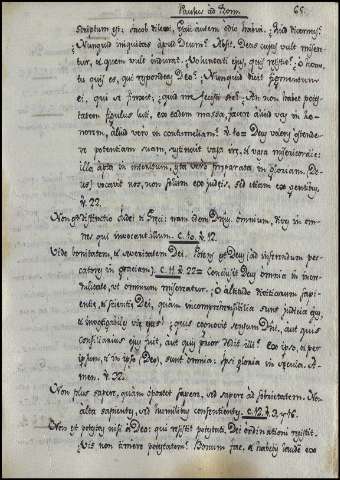 Paulus ad Rom. 65.
scriptum est: Jacob dilexi, Esau autem odio habui. ¿Quid dicemus?
¿Nunquid iniquitas apud Deum? Absit. Deus cujus vult misere-
tur, et quem vult indurat. Voluntati ejus, quis resistit? O homo,
tu quis es, qui respondeas Deo? ¿Nunquid dicit figmentum
ei, qui se finxit, ¿quid me fecisti sic? ¿An non habet potes-
tatem figulus luti, ex eadem massa, facere aliud vas in ho-
norem, aliud vero in contumeliam? Deus volens ostende-
re potentiam suam, sustinuit vasa iræ, et vasa misericordiæ:
illa apta in interitum, ista præparata in gloriam. De-
us vocavit nos, non solum ex judeis, sed etiam ex gentibus,
v. 22.
Non est distinctio Judei et Græci: nam idem Dnus. omnium, dives in om-
nes qui invocant illum. C. 10. v. 12.
Vide bonitatem, et severitatem Dei. Potens est Deus
C. 11 v. 22 = Conclusit Deus omnia in incre-
dulitate, ut omnium misereatur. O altitudo divitiarum sapi-
entiæ, et scientiæ Dei, quam incomprehensibilia sunt judicia ejus,
et investigabiles viæ ejus! ¿quis cognovit sensum Dni. aut quis
consiliarius ejus fuit, aut quis prior dedit illi? ex ipso, et per
ipsum, et in ipso (Deo), sunt omnia: ipsi gloria in sæcula. A-
men. v. 32.
Non plus sapere, quam oportet sapere, sed sapere ad sobrietatem. Non
alta sapientes, sed humilibus consentientes. C. 12. v. 3, et 16.
Non est potestas nisi a Deo: qui resistit potestati Dei ordinationi resistit.
¿Vis non timere potestatem? Bonum fac, et habebis laudem ex